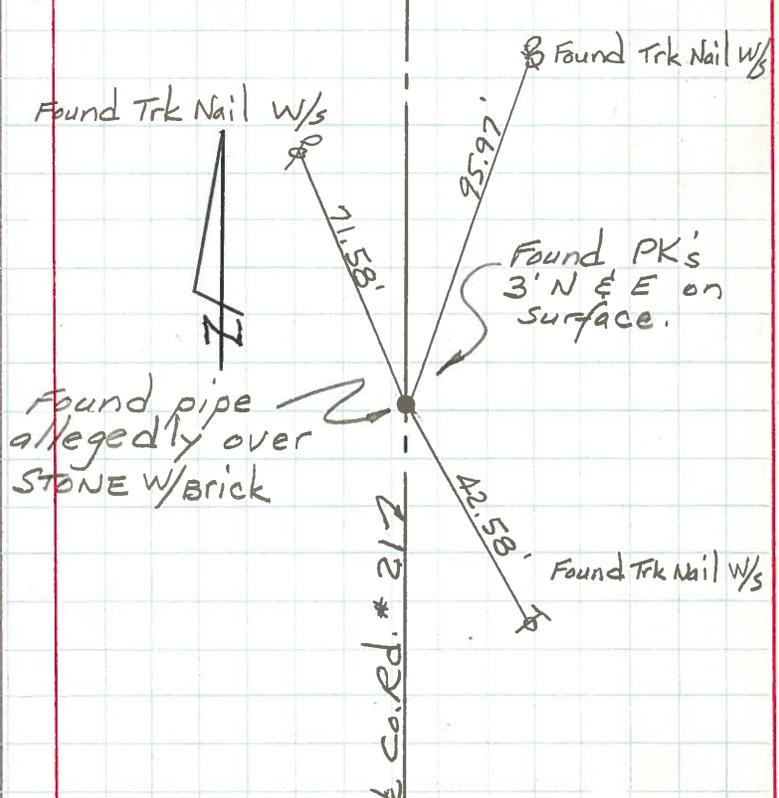 Found Trk Nail W/s
Found Trk Nail W/s
71.58'
95.97'
Found PK's
3' N & E on
Surface.
N
Found pipe
allegedly over
STONE W/Brick
42.58'
Found Trk Nail W/s
Co. Rd. # 217